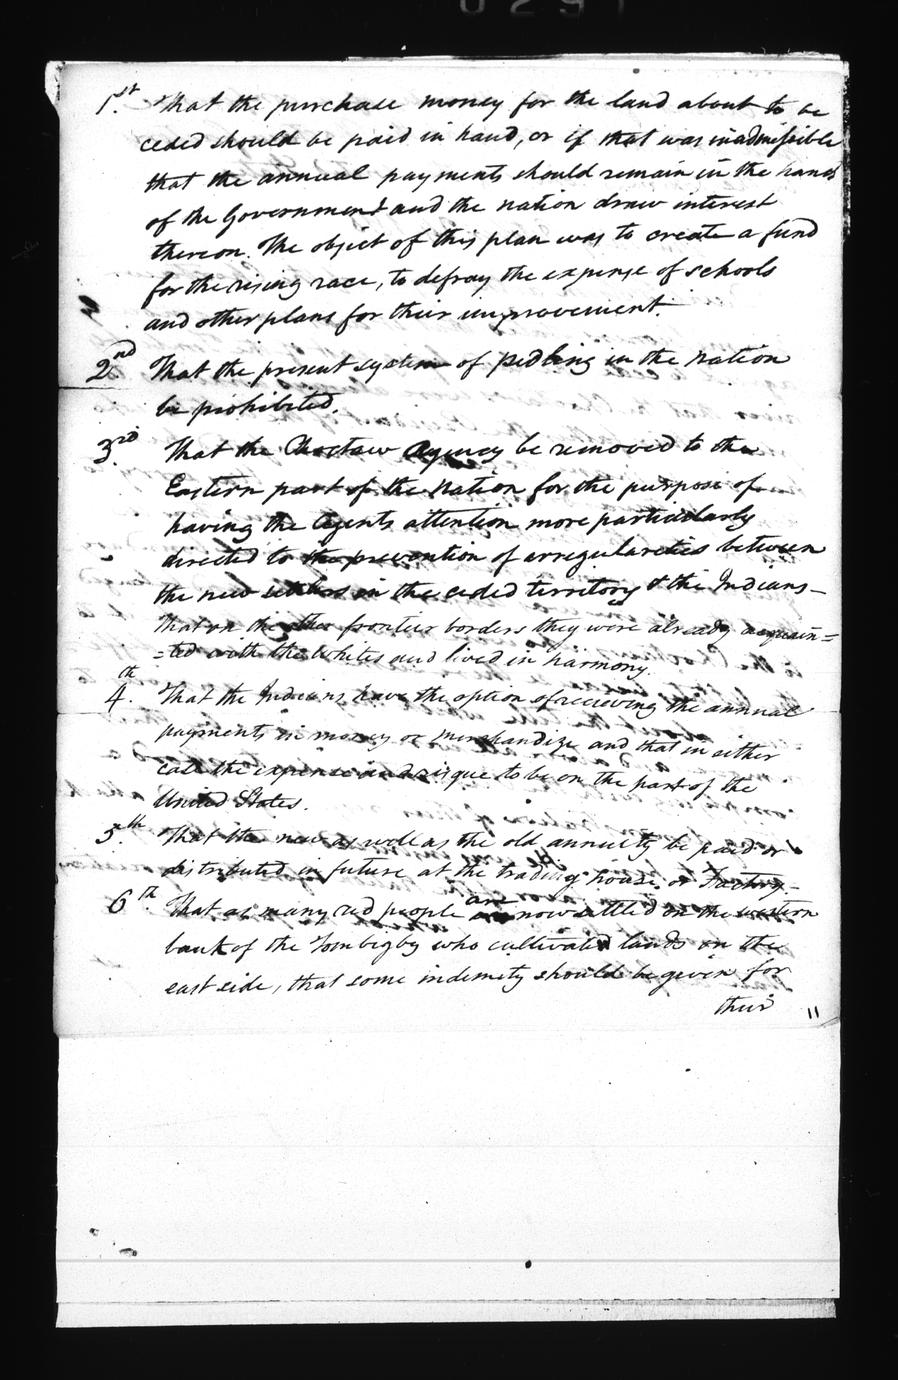 1st. That the purchase money for the land about to be
ceded should be paid in hand, or if that was inadmissible
that the annual payments should remain in the hands
of the Government and the nation draw interest
thereon. The object of this plan was to create a fund
for the rising race, to defray the expense of schools
and other plans for their improvement.
2nd That the present system of pedling in the nation
be prohibited.
3rd. That the Choctaw Agency be removed to the
Eastern part of the nation for the purpose of
having the Agents attention more particularly
directed to the prevention of irregularities between
the new settlers in the ceded territory & the Indians –
That on the other frontier borders they were already acquain=
=ted with the Whites and lived in harmony.
4th. That the Indians have the option of recieving the annual
payments in money or merchandize and that in either
case the expense and risque to be on the part of the
United States.
5th. That the new as well as the old annuity be paid or
distributed in future at the trading house or Factory –
6th. That as many red people are now settled on the western
bank of the Tombigby who cultivated lands on the
east side, that some indemity should be given for
their
11